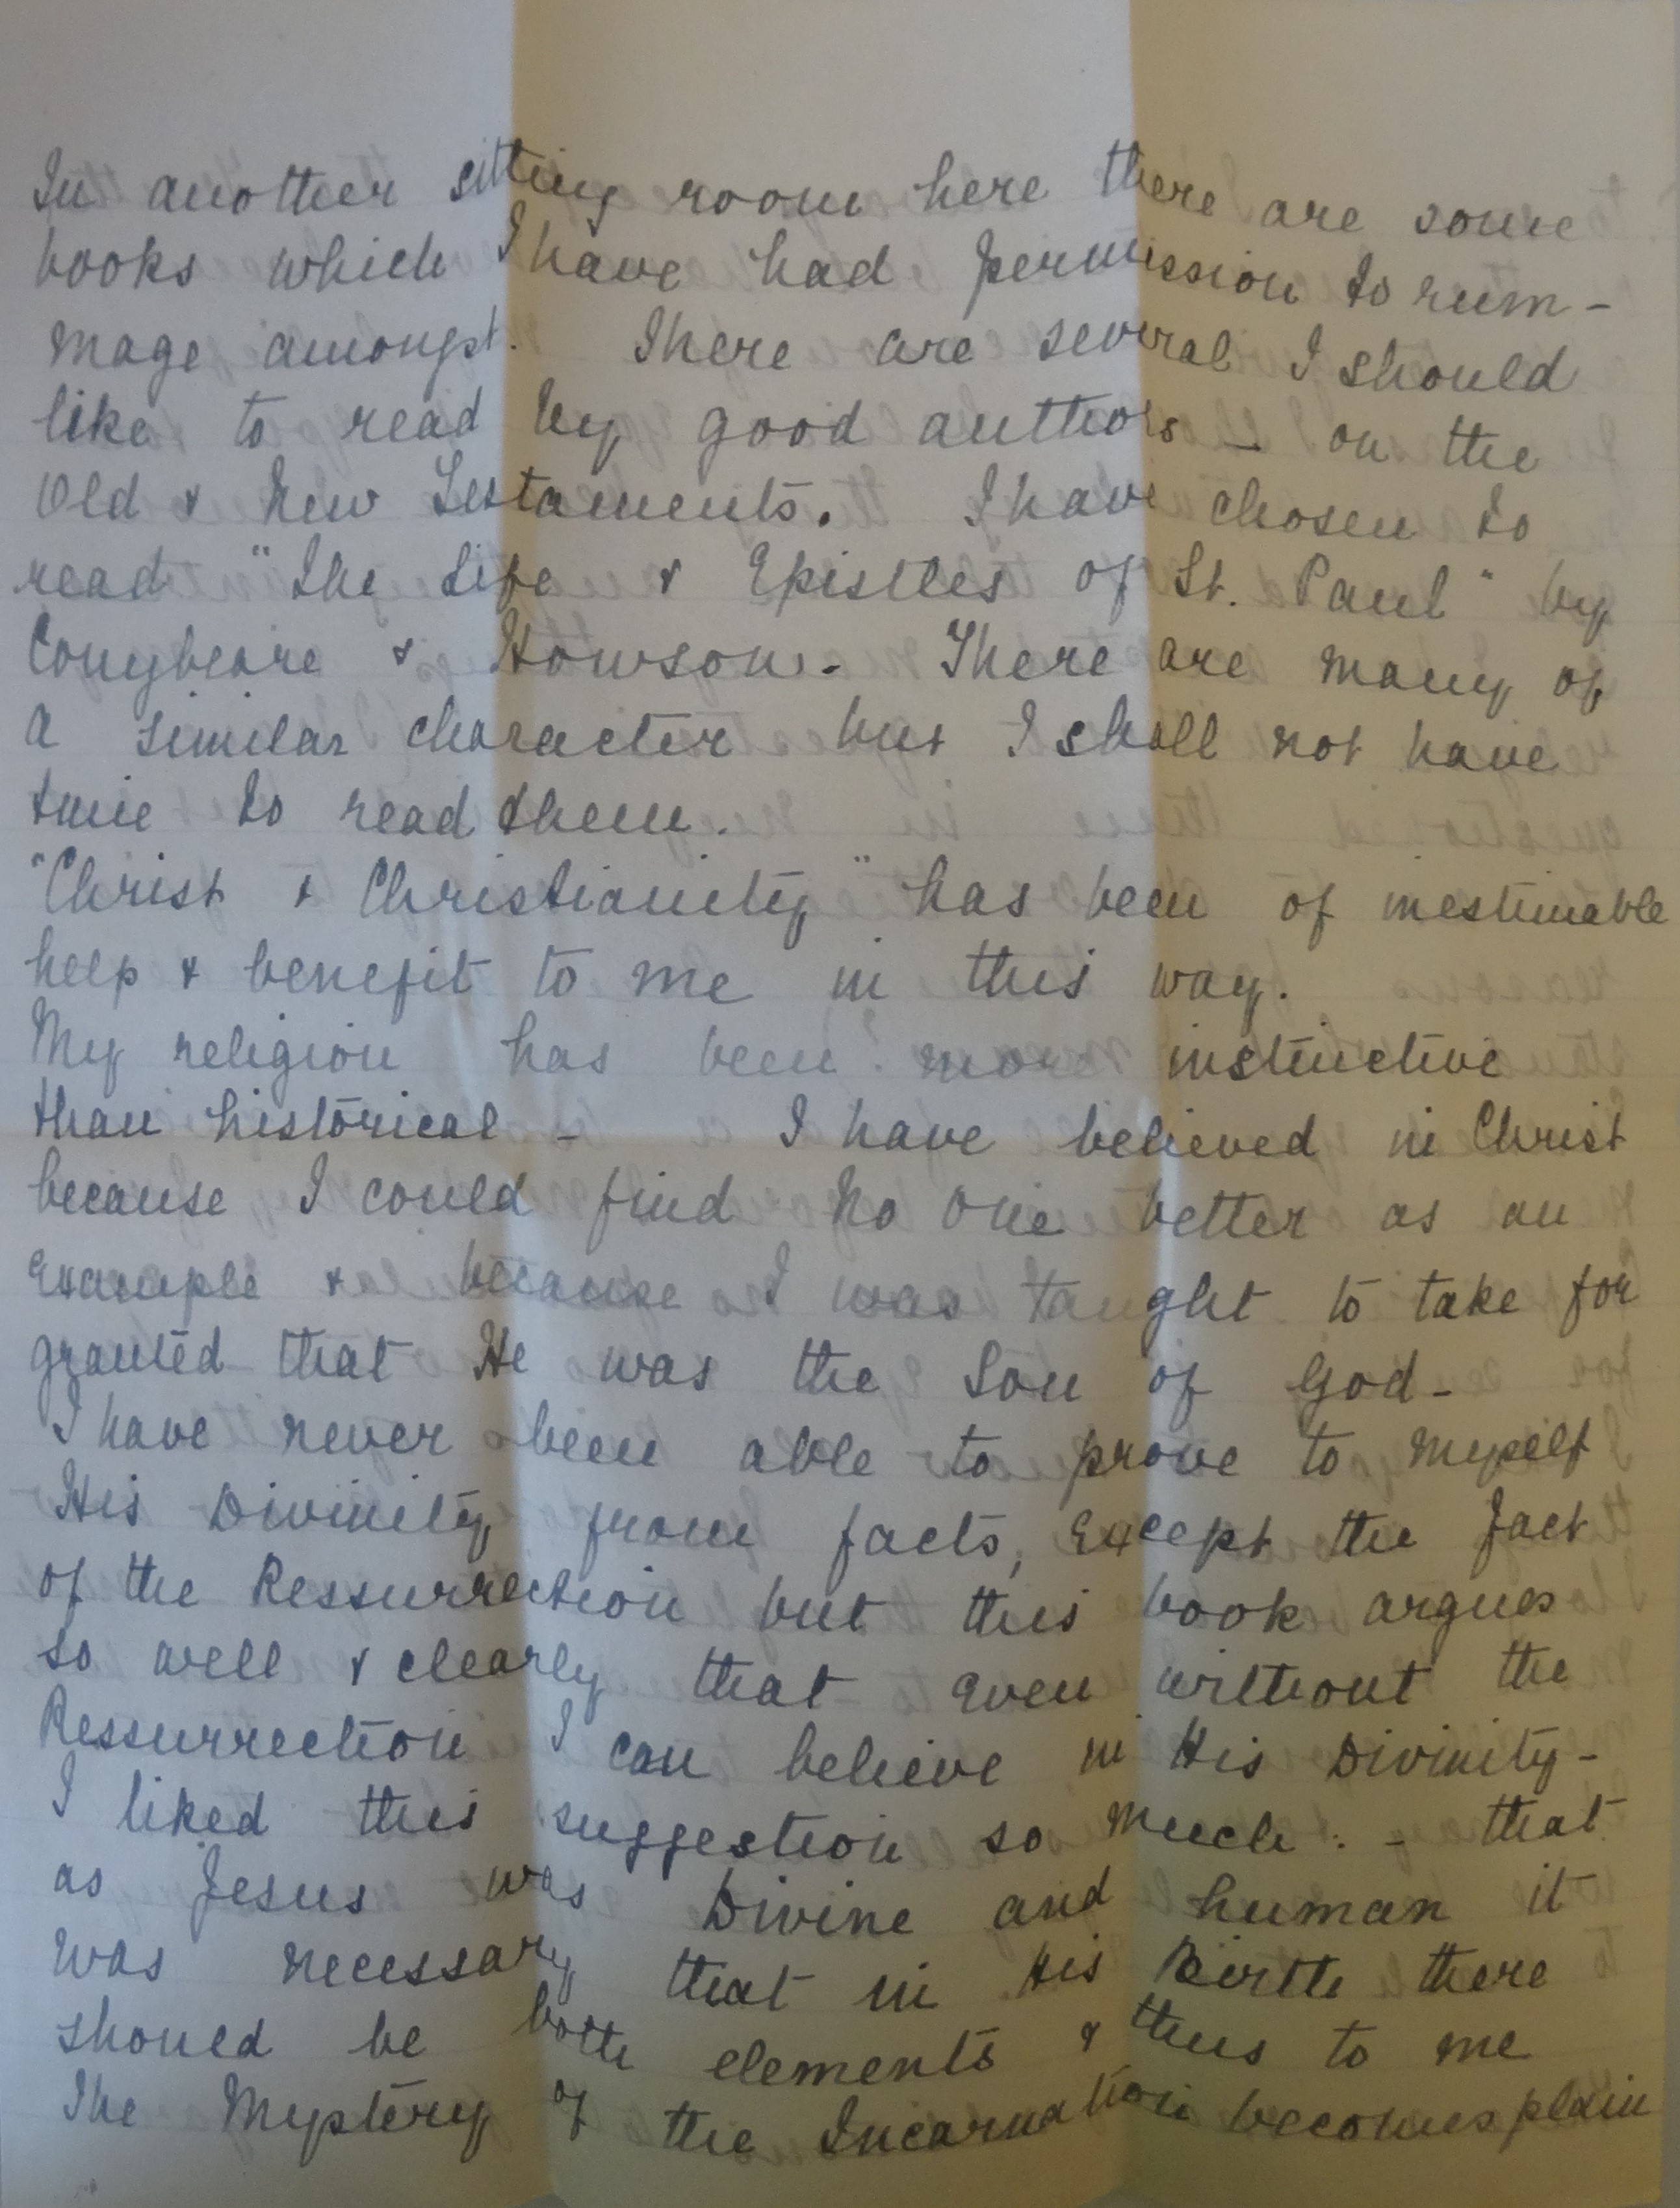 In another sitting room here there are some
books which I have had permission to rum-
mage amongst. There are several I should
like to read by good authors - on the
Old & New Testaments. I have chosen to
read "The Life & Epistles of St. Paul" by
Conybeare & Howson. There are many of
a similar character but I shall not have
time to read them.
"Christ & Christianity" has been of inestimable
help & benefit to me in this way.
My religion has been more instinctive
than historical - I have believed in Christ
because I could find no one better as an
example & because I was taught to take for
granted that He was the Son of God -
I have never been able to prove to myself
His Divinity from facts, except the fact
of the Ressurrection but this book argues
so well & clearly that even without the
Ressurrection I can believe in His Divinity -
I liked this suggestion so much : - that
as Jesus was Divine and human it
was necessary that in His Birth there
should be both elements & thus to me
The Mystery of the Incarnation becomes plain